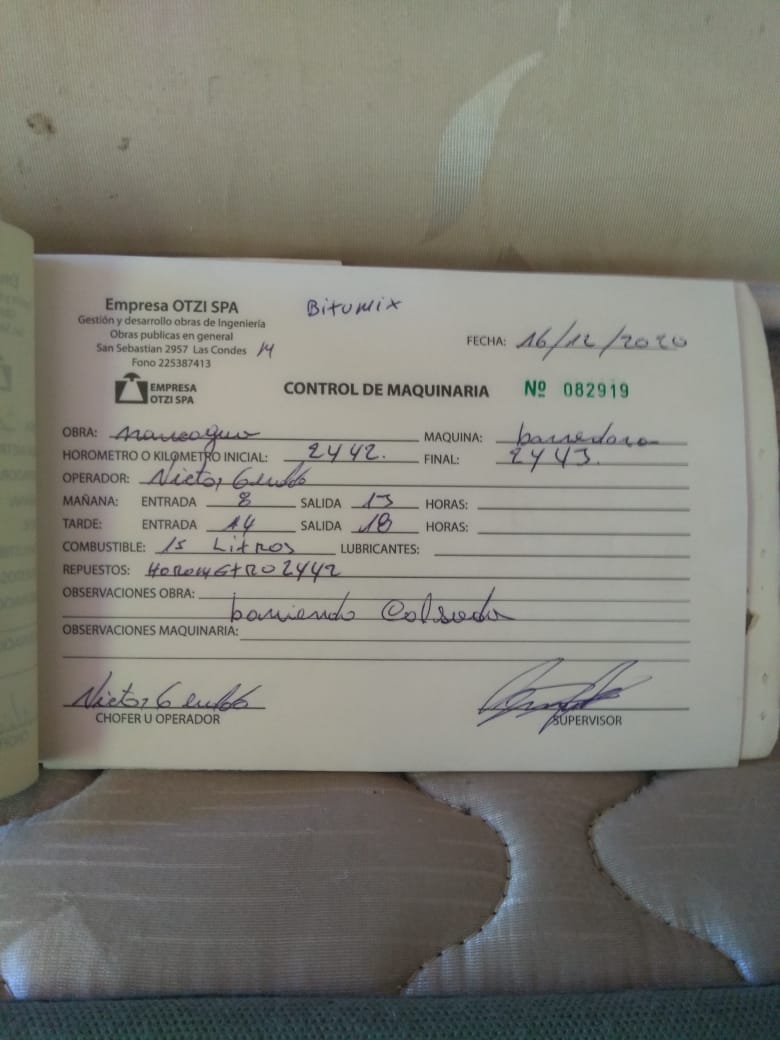 Empresa OTZI SPA
Gestión y desarrollo obras de Ingeniería
Obras publicas en general
San Sebastian 2957 Las Condes 14
Fono 225387413
EMPRESA
OTZI SPA
Bitumix
FECHA: 16/12/2020
CONTROL DE MAQUINARIA Nº 082919
OBRA: MAQUINA: barredora
HOROMETRO O KILOMETRO INICIAL: 2442. FINAL: 2443.
OPERADOR: Victor
MAÑANA: ENTRADA 8 SALIDA 13 HORAS:
TARDE: ENTRADA 14 SALIDA 18 HORAS:
COMBUSTIBLE: 15 Litros LUBRICANTES:
REPUESTOS: HOROMETRO 2442
OBSERVACIONES OBRA:
barriendo Calsada
OBSERVACIONES MAQUINARIA:
Victor
CHOFER U OPERADOR
SUPERVISOR